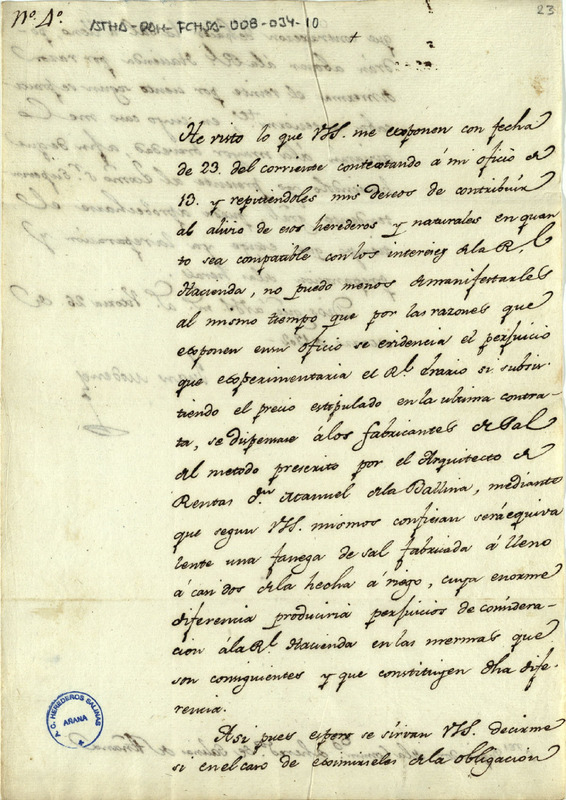 Nº. 4º.
ATHA-DAH-FCHSA-008-034-10
23
He visto lo que VSS. me exponen con fecha
de 23. del corriente contextando á mi oficio de
13. y repitiendoles mis deseos de contribuir
al alivio de esos herederos y naturales en quan
to sea compatible con los intereses de la R.l
Hacienda, no puedo menos de manifestarles
al mismo tiempo que por las razones que
exponen en su oficio se evidencia el perjuicio
que experimentaria el Rl. Erario si subsis
tiendo el precio estipulado en la ultima contra-
ta, se dispensase á los fabricantes de Sal
del metodo prescrito por el Arquitecto de
Rentas dn. Manuel de la Ballina, mediante
que segun VSS. mismos confiesan será equiva
lente una fanega de sal fabricada á lleno
á casi dos de la hecha á riego, cuya enorme
diferencia produciria perjuicios de considera-
cion á la Rl. Hacienda en las mermas que
son consiguientes y que constituyen dha dife-
rencia.
Asi pues espero se sirvan VSS. decirme
si en el caso de eximirseles de la obligación
Y C. HEREDEROS SALINAS
AÑANA